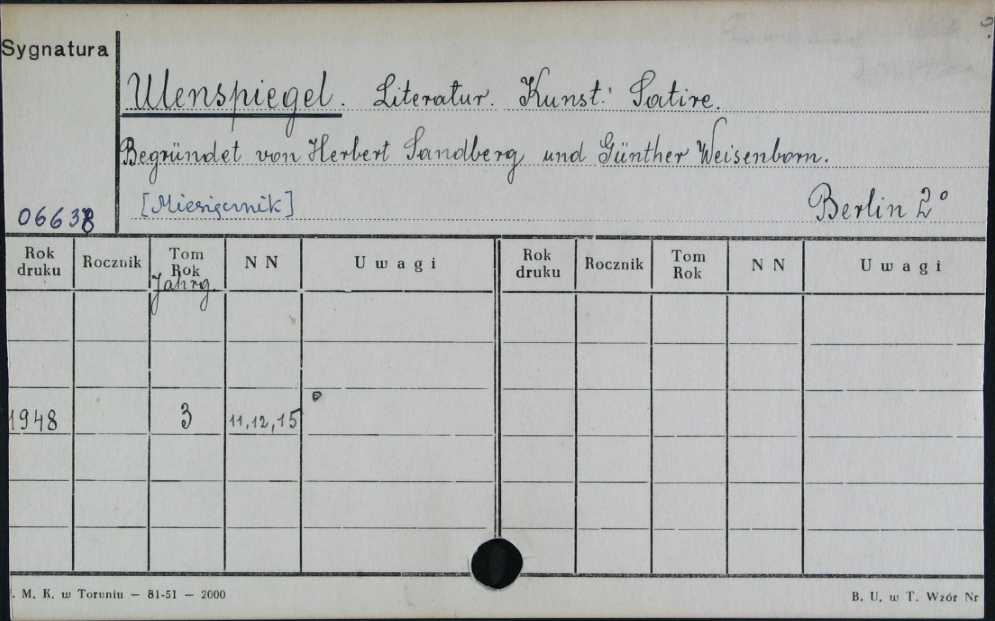 Sygnatura
Ulenspiegel. Literatur. Kunst. Satire.
Begründet von Herbert Sandberg und Günther Weisenborn.
06638 [Miesięcznik] Berlin 2°
Rok druku Rocznik Tom Rok Jahrg. NN Uwagi Rok druku Rocznik Tom Rok NN Uwagi
1948 3 11,12,15
. M. K. w Toruniu — 81-51 — 2000 B. U. w T. Wzór Nr